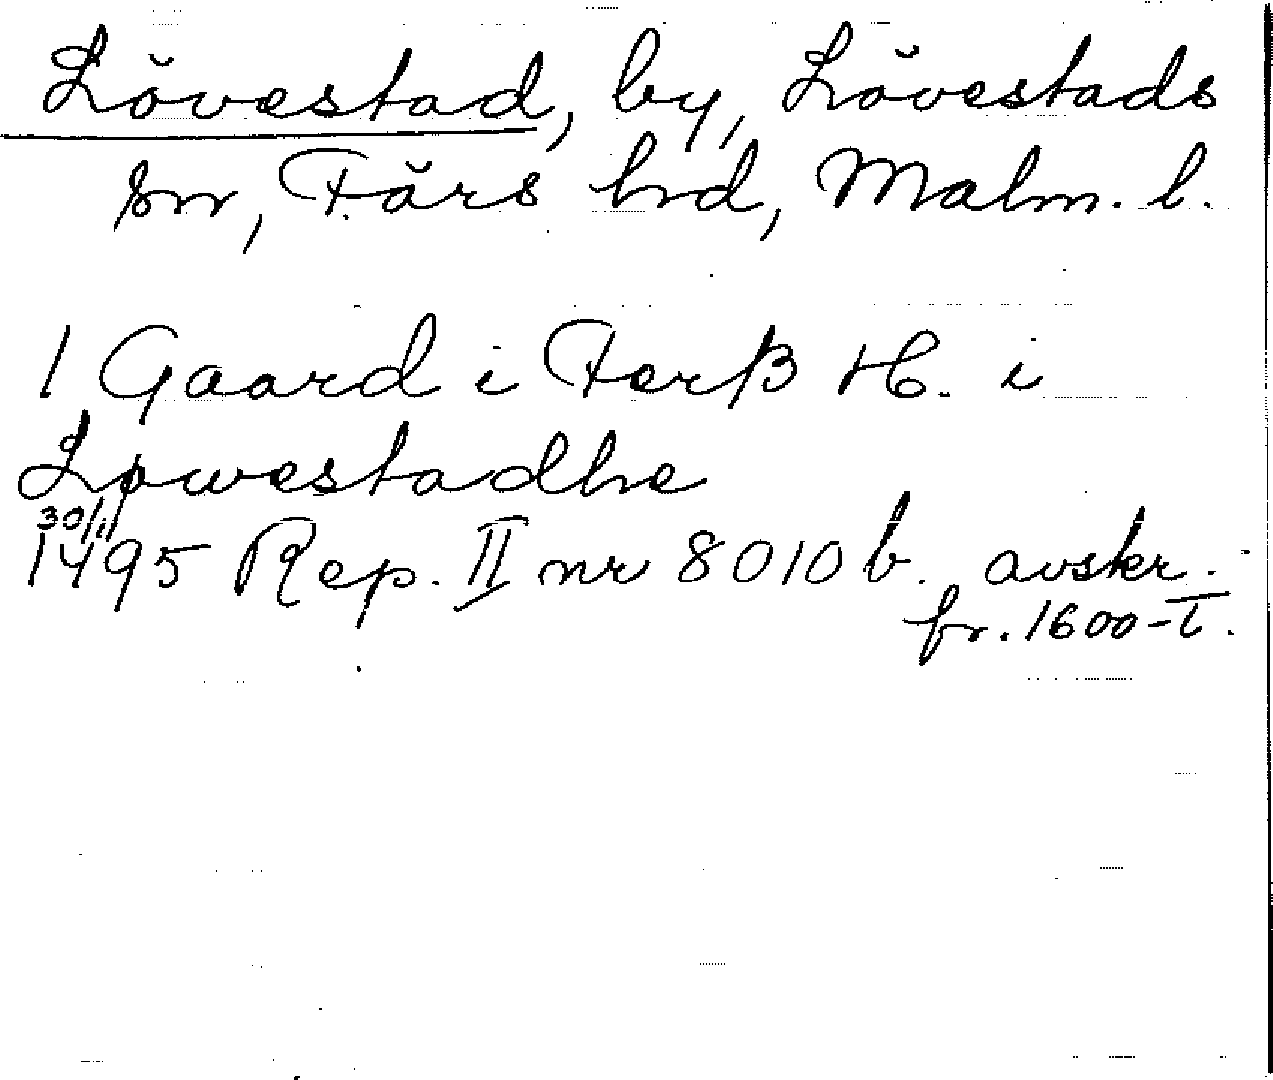 Lövestad, by, Lövestads
sn, Färs hd, Malm. l.
1 Gaard i Ferß H. i
Løwestadhe
30/1
1495 Rep. II nr 8010 b. avskr.
fr. 1600-t.